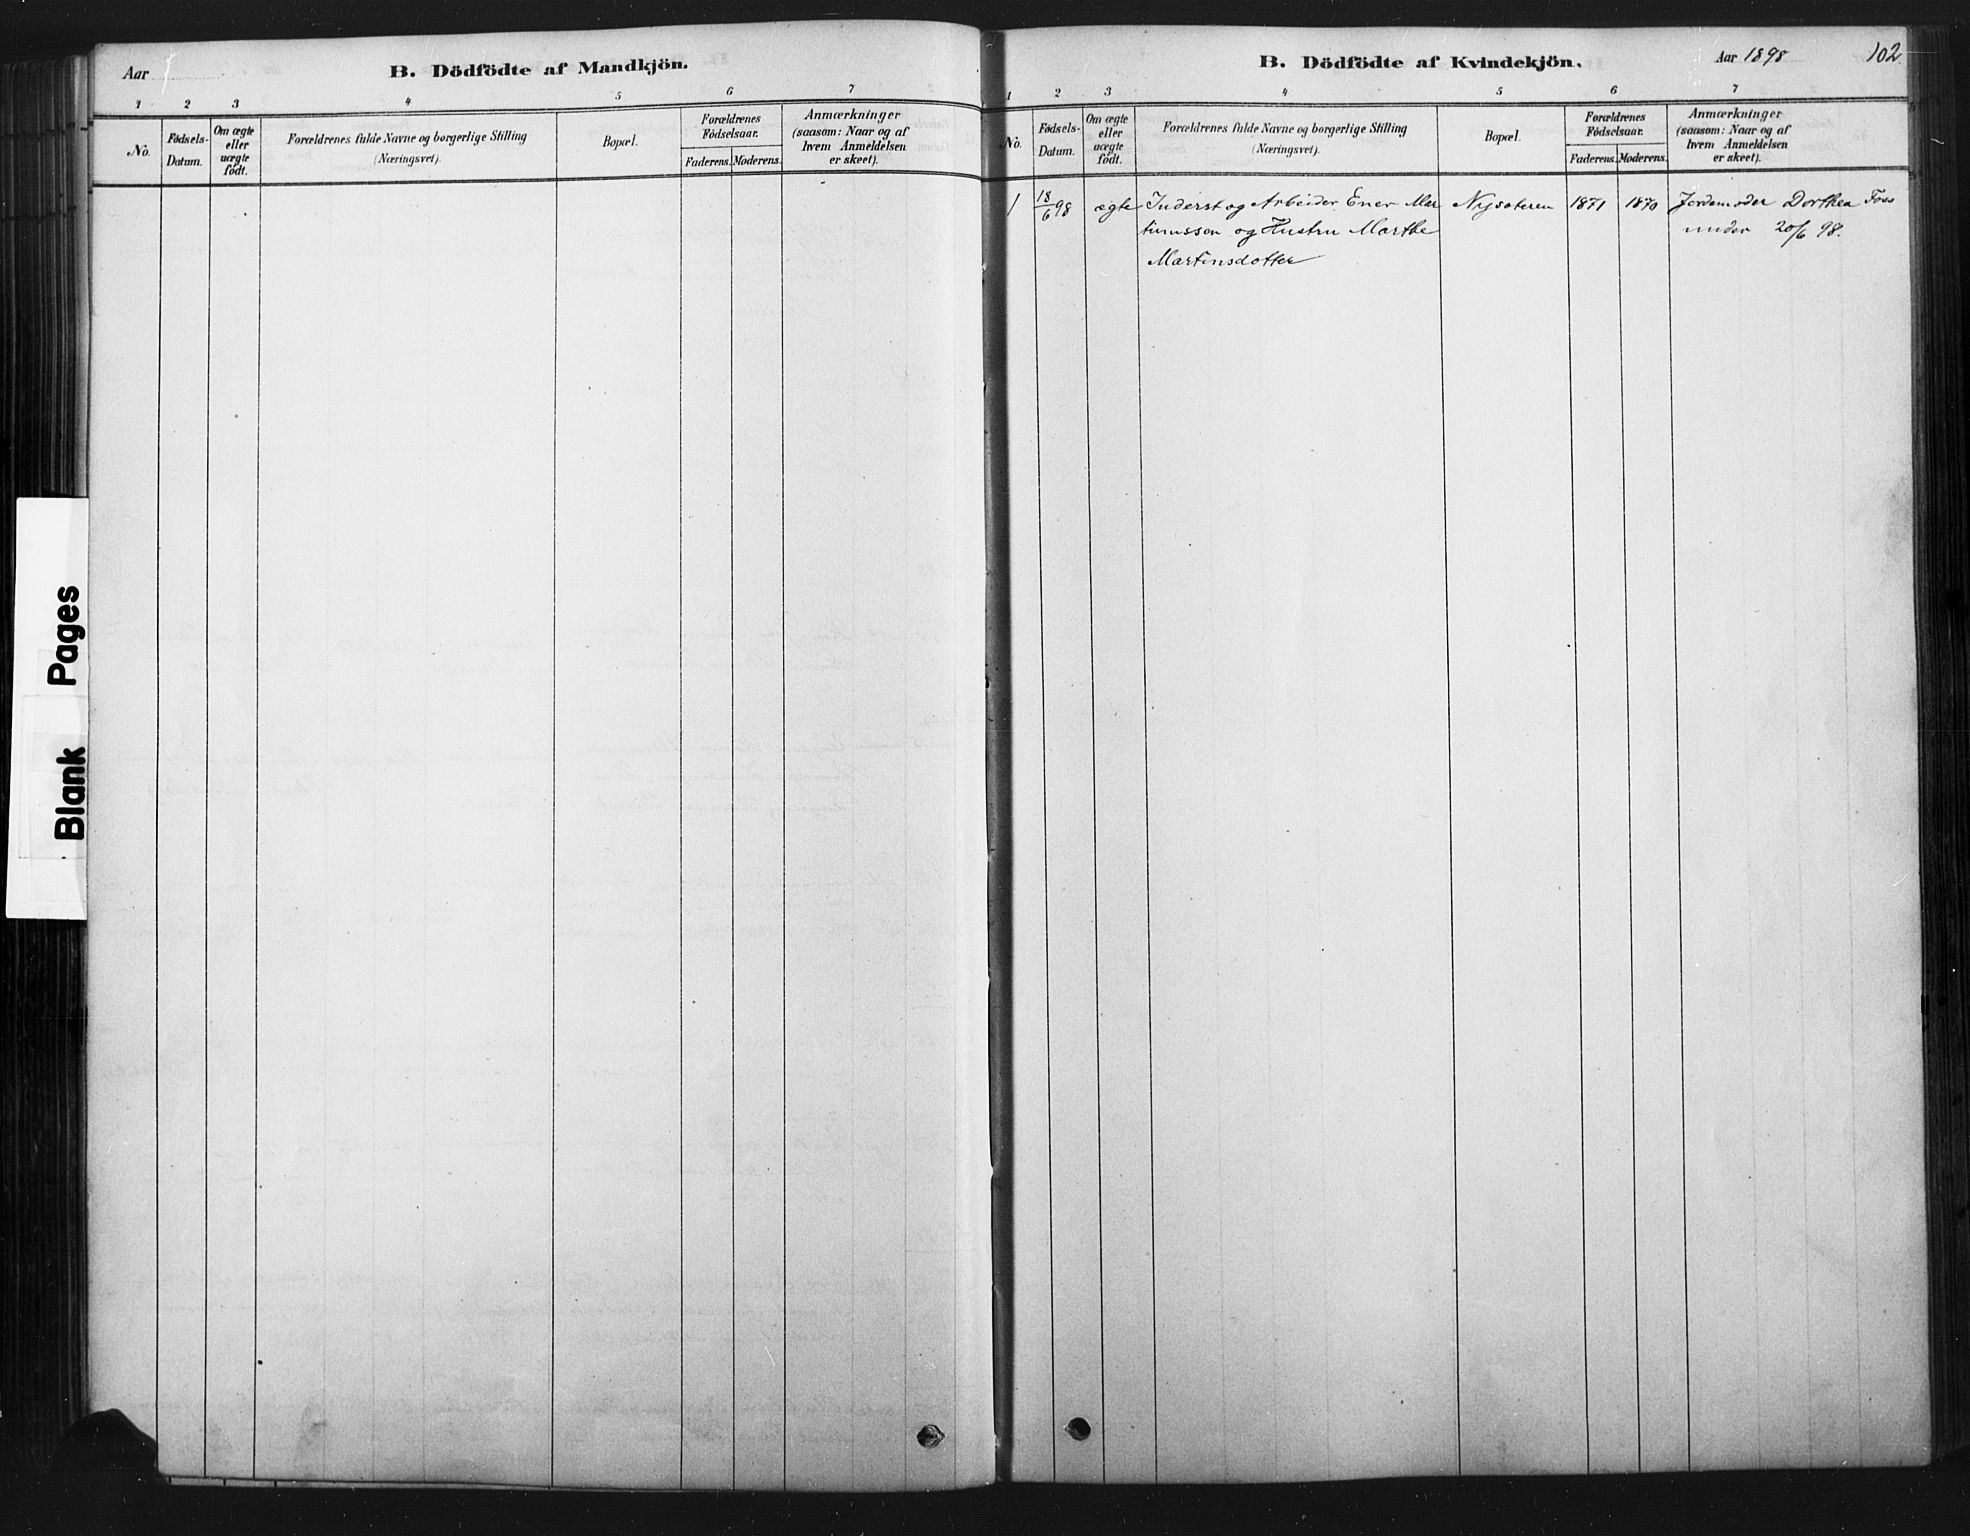 Aar
B. Dödfödte af Mandkjön.
1 2 3 4 5 6 7
No.
Fødsels-
Datum.
Om ægte
eller
uægte
født.
Forældrenes fulde Navne og borgerlige Stilling
(Næringsvei).
Bopæl.
Forældrenes
Fødselsaar.
Faderens. Moderens.
Anmærkninger
(saasom: Naar og af
hvem Anmeldelsen
er skeet).
B. Dödfödte af Kvindekjön.
Aar 1898
102
1 2 3 4 5 6 7
No.
Fødsels-
Datum.
Om ægte
eller
uægte
født.
Forældrenes fulde Navne og borgerlige Stilling
(Næringsvei).
Bopæl.
Forældrenes
Fødselsaar.
Faderens. Moderens.
Anmærkninger
(saasom: Naar og af
hvem Anmeldelsen
er skeet).
1 18/6 98 ægte Inderst og Arbeider Ener Mar Nysæteren 1871 1870 Jordemoder Dorthea Foss
tinussen og Hustru Marthe under 20/6 98.
Martinsdotter
Blank Pages